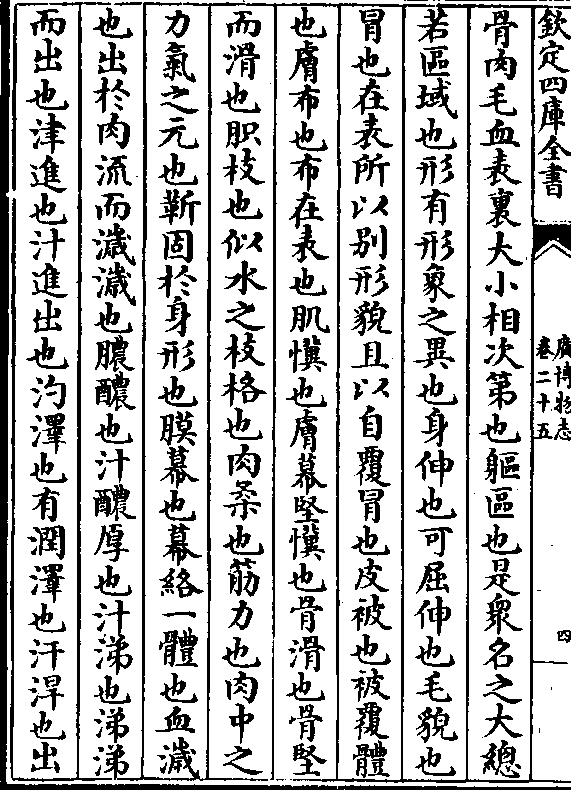 欽定四庫全書
廣博物志
卷二十五
四
骨肉毛血表裏大小相次第也軀區也是衆名之大總
若區域也形有形象之異也身伸也可屈伸也毛貌也
冒也在表所以别形貌且以自覆冒也皮被也被覆體
也膚布也布在表也肌懻也膚幕堅懻也骨滑也骨堅
而滑也胑枝也似水之枝格也肉柔也筋力也肉中之
力氣之元也靳固於身形也膜幕也幕絡一體也血濊
也出於肉流而濊濊也膿醲也汁醲厚也汁涕也涕涕
而出也津進也汁進出也汋澤也有潤澤也汗涆也出